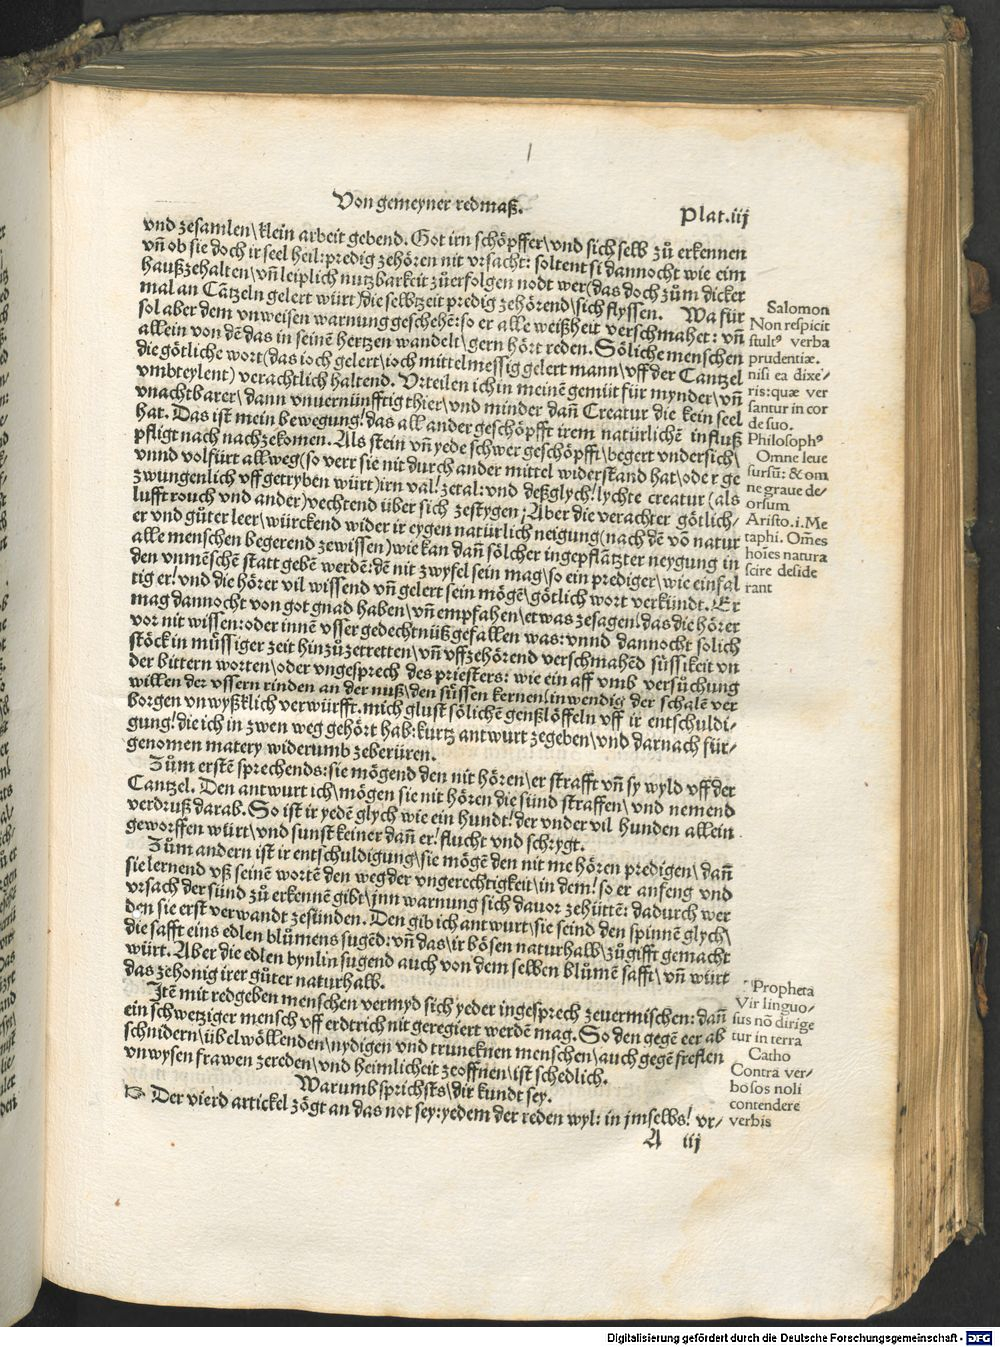 Von gemeyner redmaß.
Plat.iij
vnd zesamlen\klein arbeit gebend. Got irn schöpffer\vnd sich selb zů erkennen
vñ ob sie doch ir seel heil: predig zehören nit vrsacht: soltent si dannocht wie eim
haußzehalten\vñ leiplich nutzbarkeit zůerfolgen nodt wer(das doch zům dicker
mal an Cãtzeln gelert würt)die selbtzeit predig zehörend\sich flyssen. Wa für
sol aber dem vnweisen warnung geschehẽ: so er alle weißheit verschmahet: vñ
allein von dẽ das in seinẽ hertzen wandelt\gern hört reden. Söliche menschen
die götliche wort(das ioch gelert\ioch mittelmessig gelert mann\vff der Cantzel
vmbteylent) verachtlich haltend. Vrteilen ich in meinẽ gemüt für mynder\vñ
vnachtbarer\dann vnuernünfftig thier\vnd minder dañ Creatur die kein seel
hat. Das ist mein bewegung! das all ander geschöpfft irem natürlichẽ influß
pfligt nach nachzekomen. Als stein vñ yede schwer geschöpfft\begert vndersich\
vnnd volfürt allweg(so verr sie nit durch ander mittel widerstand hat\oder ge
zwungenlich vff getryben würt)irn val! zetal: vnd deßglych! lychte creatur(als
lufft rouch vnd ander)vechtend über sich zestygen; Aber die verachter götlich⸗
er vnd gůter leer\würckend wider ir eygen natürlich neigung(nach dẽ võ natur
alle menschen begerend zewissen)wie kan dañ sölcher ingepflãtzter neygung in
den vnmẽschẽ statt gebẽ werdẽ: dẽ nit zwyfel sein mag\so ein prediger\wie einfal
tig er! vnd die hörer vil wissend vñ gelert sein mögẽ\götlich wort verkündt. Er
mag dannocht von got gnad haben\vñ empfahen\etwas zesagen! das die hörer
vor nit wissen: oder innẽ vsser gedechtnüß gefallen was: vnnd dannocht solich
stöck in müssiger zeit hinzůzetretten\vñ vffzehörend verschmahẽd süssikeit vn
der bittern worten\oder vngesprech des priesters: wie ein aff vmb versůchung
willen der vssern rinden an der nuß\den süssen kernen! inwendig der schalẽ ver
borgen vnwyßklich verwürfft. mich glust sölichẽ genßlöffeln vff ir entschuldi⸗
gung! die ich in zwen weg gehört hab: kurtz antwurt zegeben\vnd darnach für⸗
genomen matery widerumb zeberüren.
Zům erstẽ sprechends: sie mögend den nit hören\er strafft vñ sy wyld vff der
Cantzel. Den antwurt ich\mögen sie nit hören die sünd straffen\vnd nemend
verdruß darab. So ist ir yedẽ glych wie ein hundt! der vnder vil hunden allein
geworffen würt\vnd sunst keiner dañ er! flucht vnd schrygt.
Zům andern ist ir entschuldigung\sie mögẽ den nit me hören predigen\dañ
sie lernend vß seinẽ wortẽ den weg der vngerechtigkeit\in dem! so er anfeng vnd
vrsach der sünd zů erkennẽ gibt\jnn warnung sich dauor zehüttẽ: dadurch wer
den sie erst verwandt zesünden. Den gib ich antwurt\sie seind den spinnẽ glych\
die safft eins edlen blůmens sugẽd: vñ das\ir bösen natur halb\zů gifft gemacht
würt. Aber die edlen bynlin sugend auch von dem selben blůmẽ safft\vñ würt
das zehonig irer gůter natur halb.
Itẽ mit redgeben menschen vermyd sich yeder in gesprech zeuermischen: dañ
ein schwetziger mensch vff erdtrich nit geregiert werdẽ mag. So den gegẽ eer ab
schnidern\übelwöllenden\nydigen vnd truncknen menschen\auch gegẽ freflen
vnwysen frawen zereden\vnd heimlicheit zeoffnen\ist schedlich.
Warumb sprichsts\dir kundt sey.
Der vierd artickel zögt an das not sey: yedem der reden wyl: in jm selbs! vr⸗
A iij
Salomon
Non respicit
stultꝰ verba
prudentiæ.
nisi ea dixe⸗
ris: quæ ver
santur in cor
de suo.
Philosophꝰ
Omne leue
sursũ: & om
ne graue de⸗
orsum
Aristo.i.Me
taphi. Oẽs
hoĩes natura
scire deside
rant
Propheta
Vir linguo⸗
sus nõ dirige
tur in terra
Catho
Contra ver⸗
bosos noli
contendere
verbis
Digitalisierung gefördert durch die Deutsche Forschungsgemeinschaft - DFG